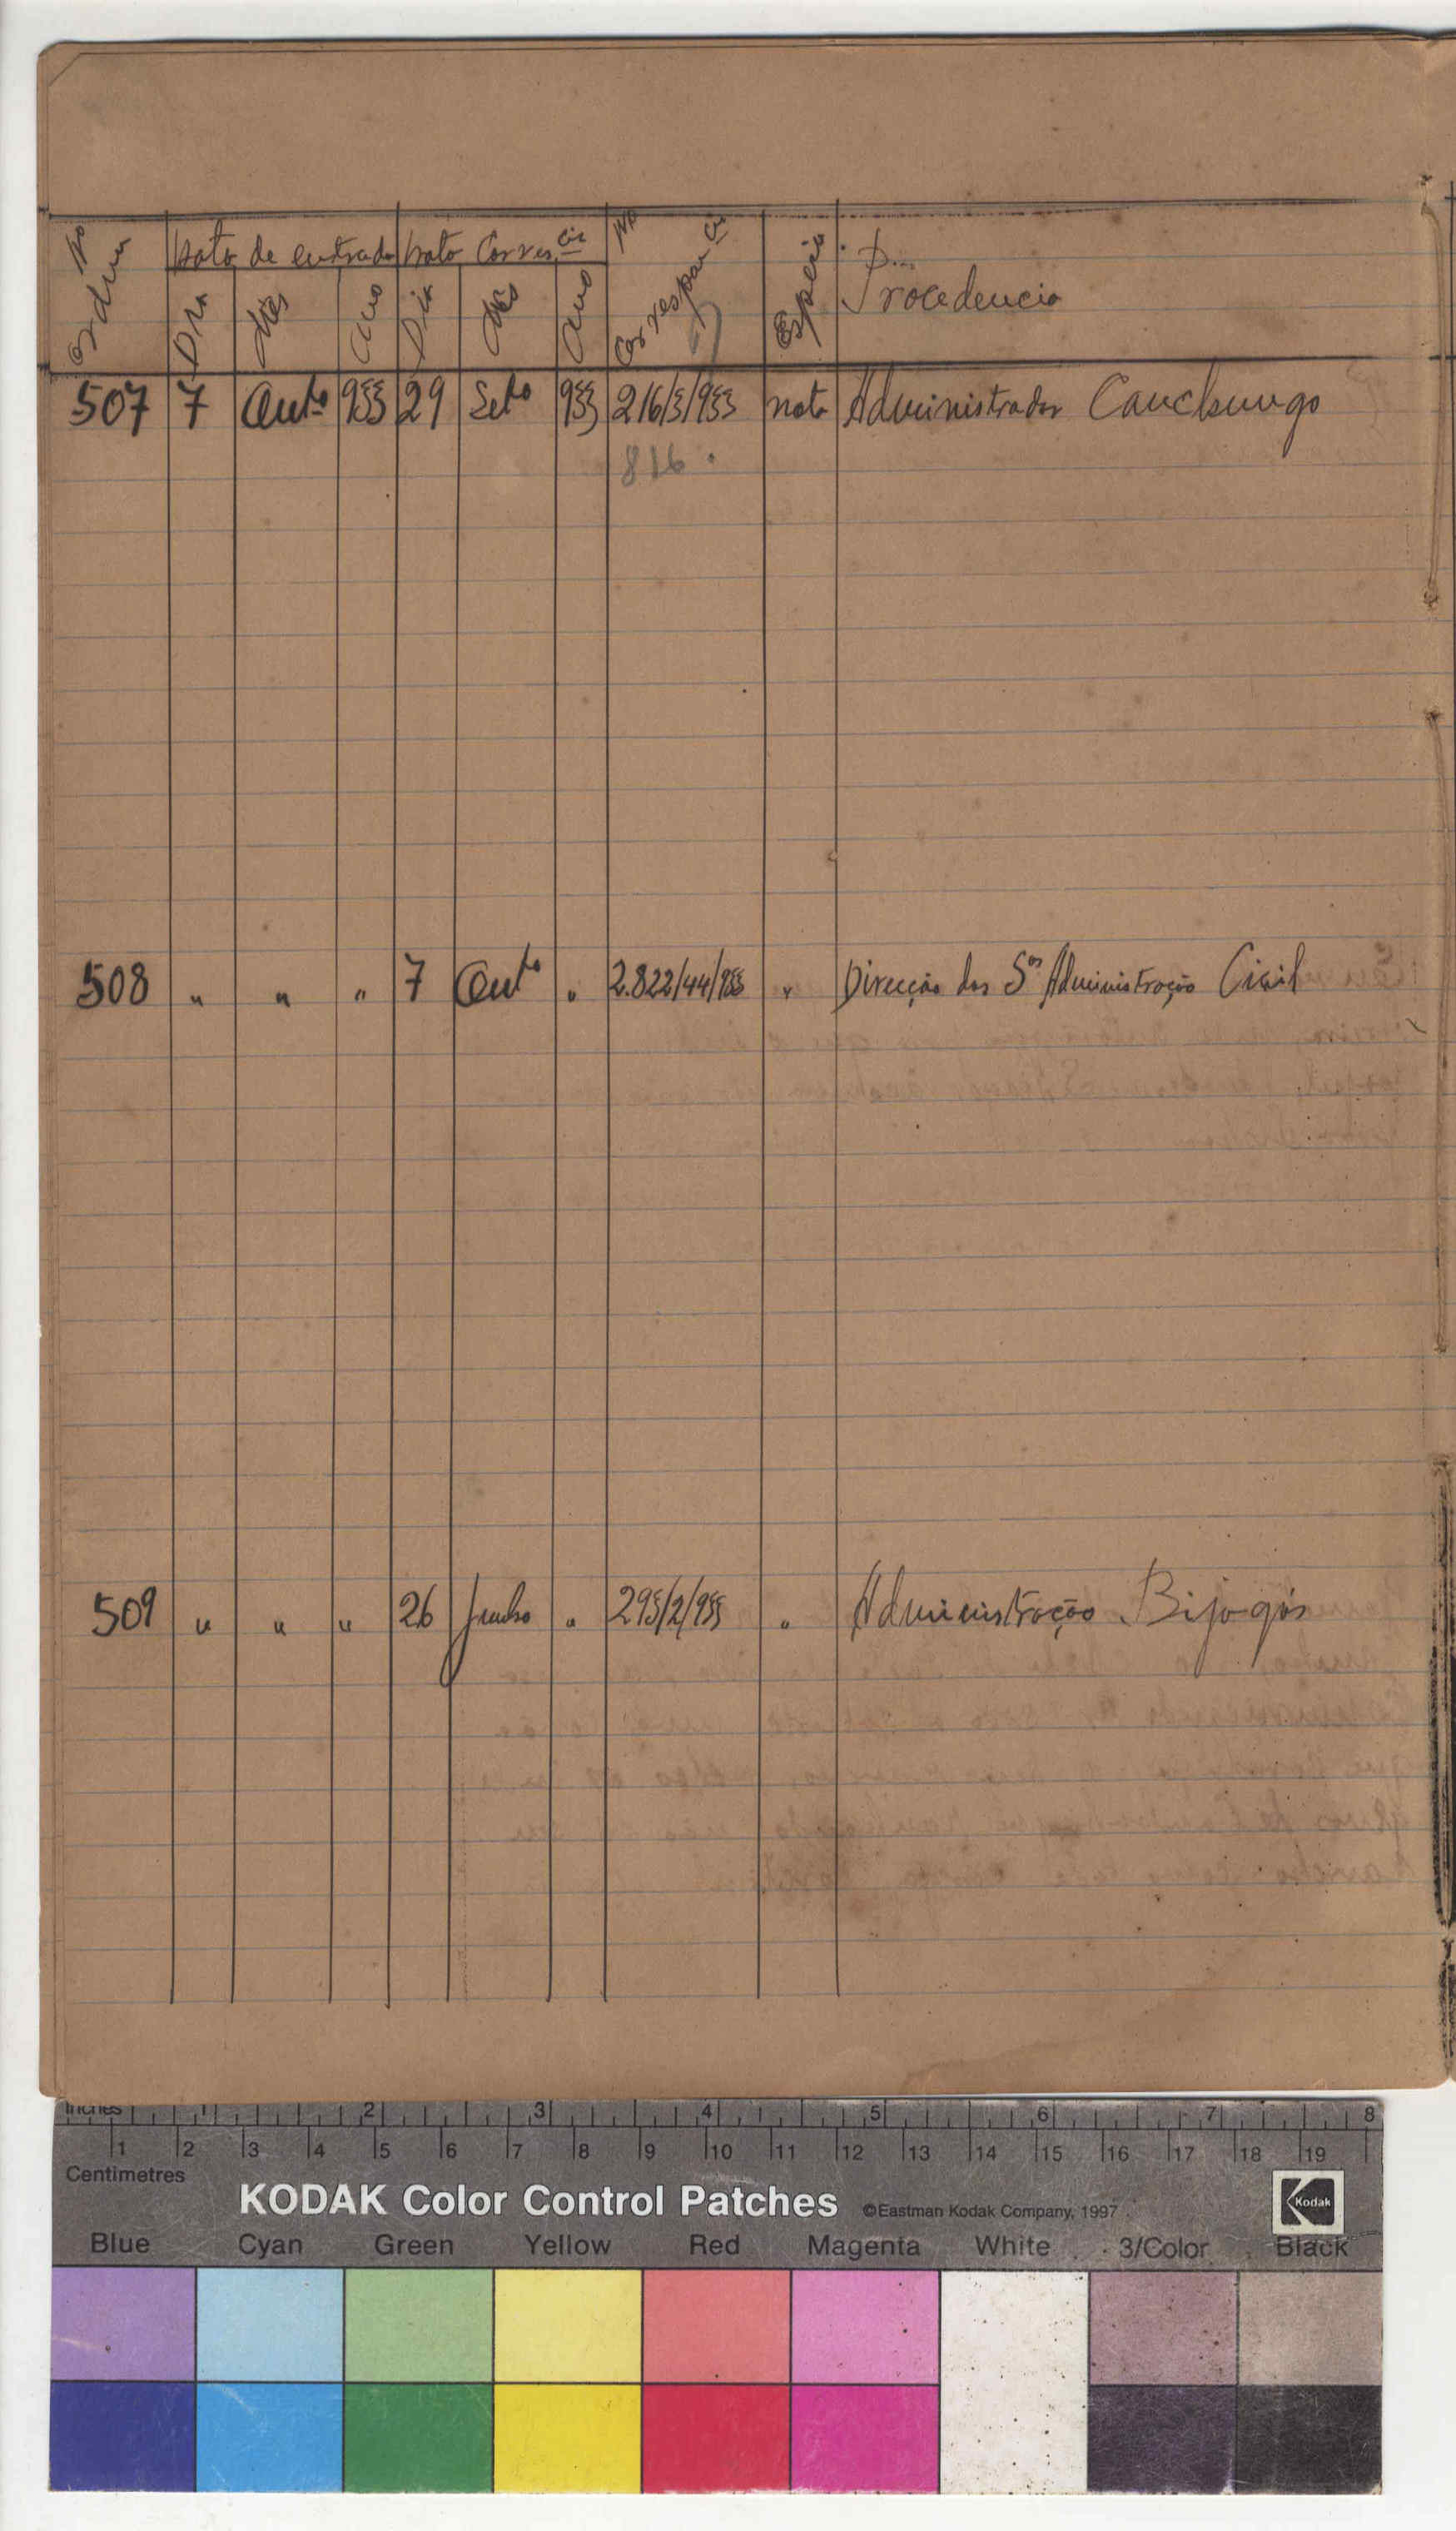 Nº Ordem | Data de entrada | Data Corres.cia | Nº Correspon.cia | Especie | Procedencia
Dia | Mês | Ano | Dia | Mês | Ano
507 | 7 | Outo | 955 | 29 | Seto | 955 | 216/5/955 | nota | Administrador Canchungo
816.
508 | " | " | " | 7 | Outo | " | 2.822/44/955 | " | Direcção dos Sos Administração Civil
509 | " | " | " | 26 | Junho | " | 295/2/955 | " | Administração Bijagós
Inches 1 2 3 4 5 6 7 8
1 2 3 4 5 6 7 8 9 10 11 12 13 14 15 16 17 18 19
Centimetres
KODAK Color Control Patches ©Eastman Kodak Company, 1997 Kodak
Blue Cyan Green Yellow Red Magenta White 3/Color Black